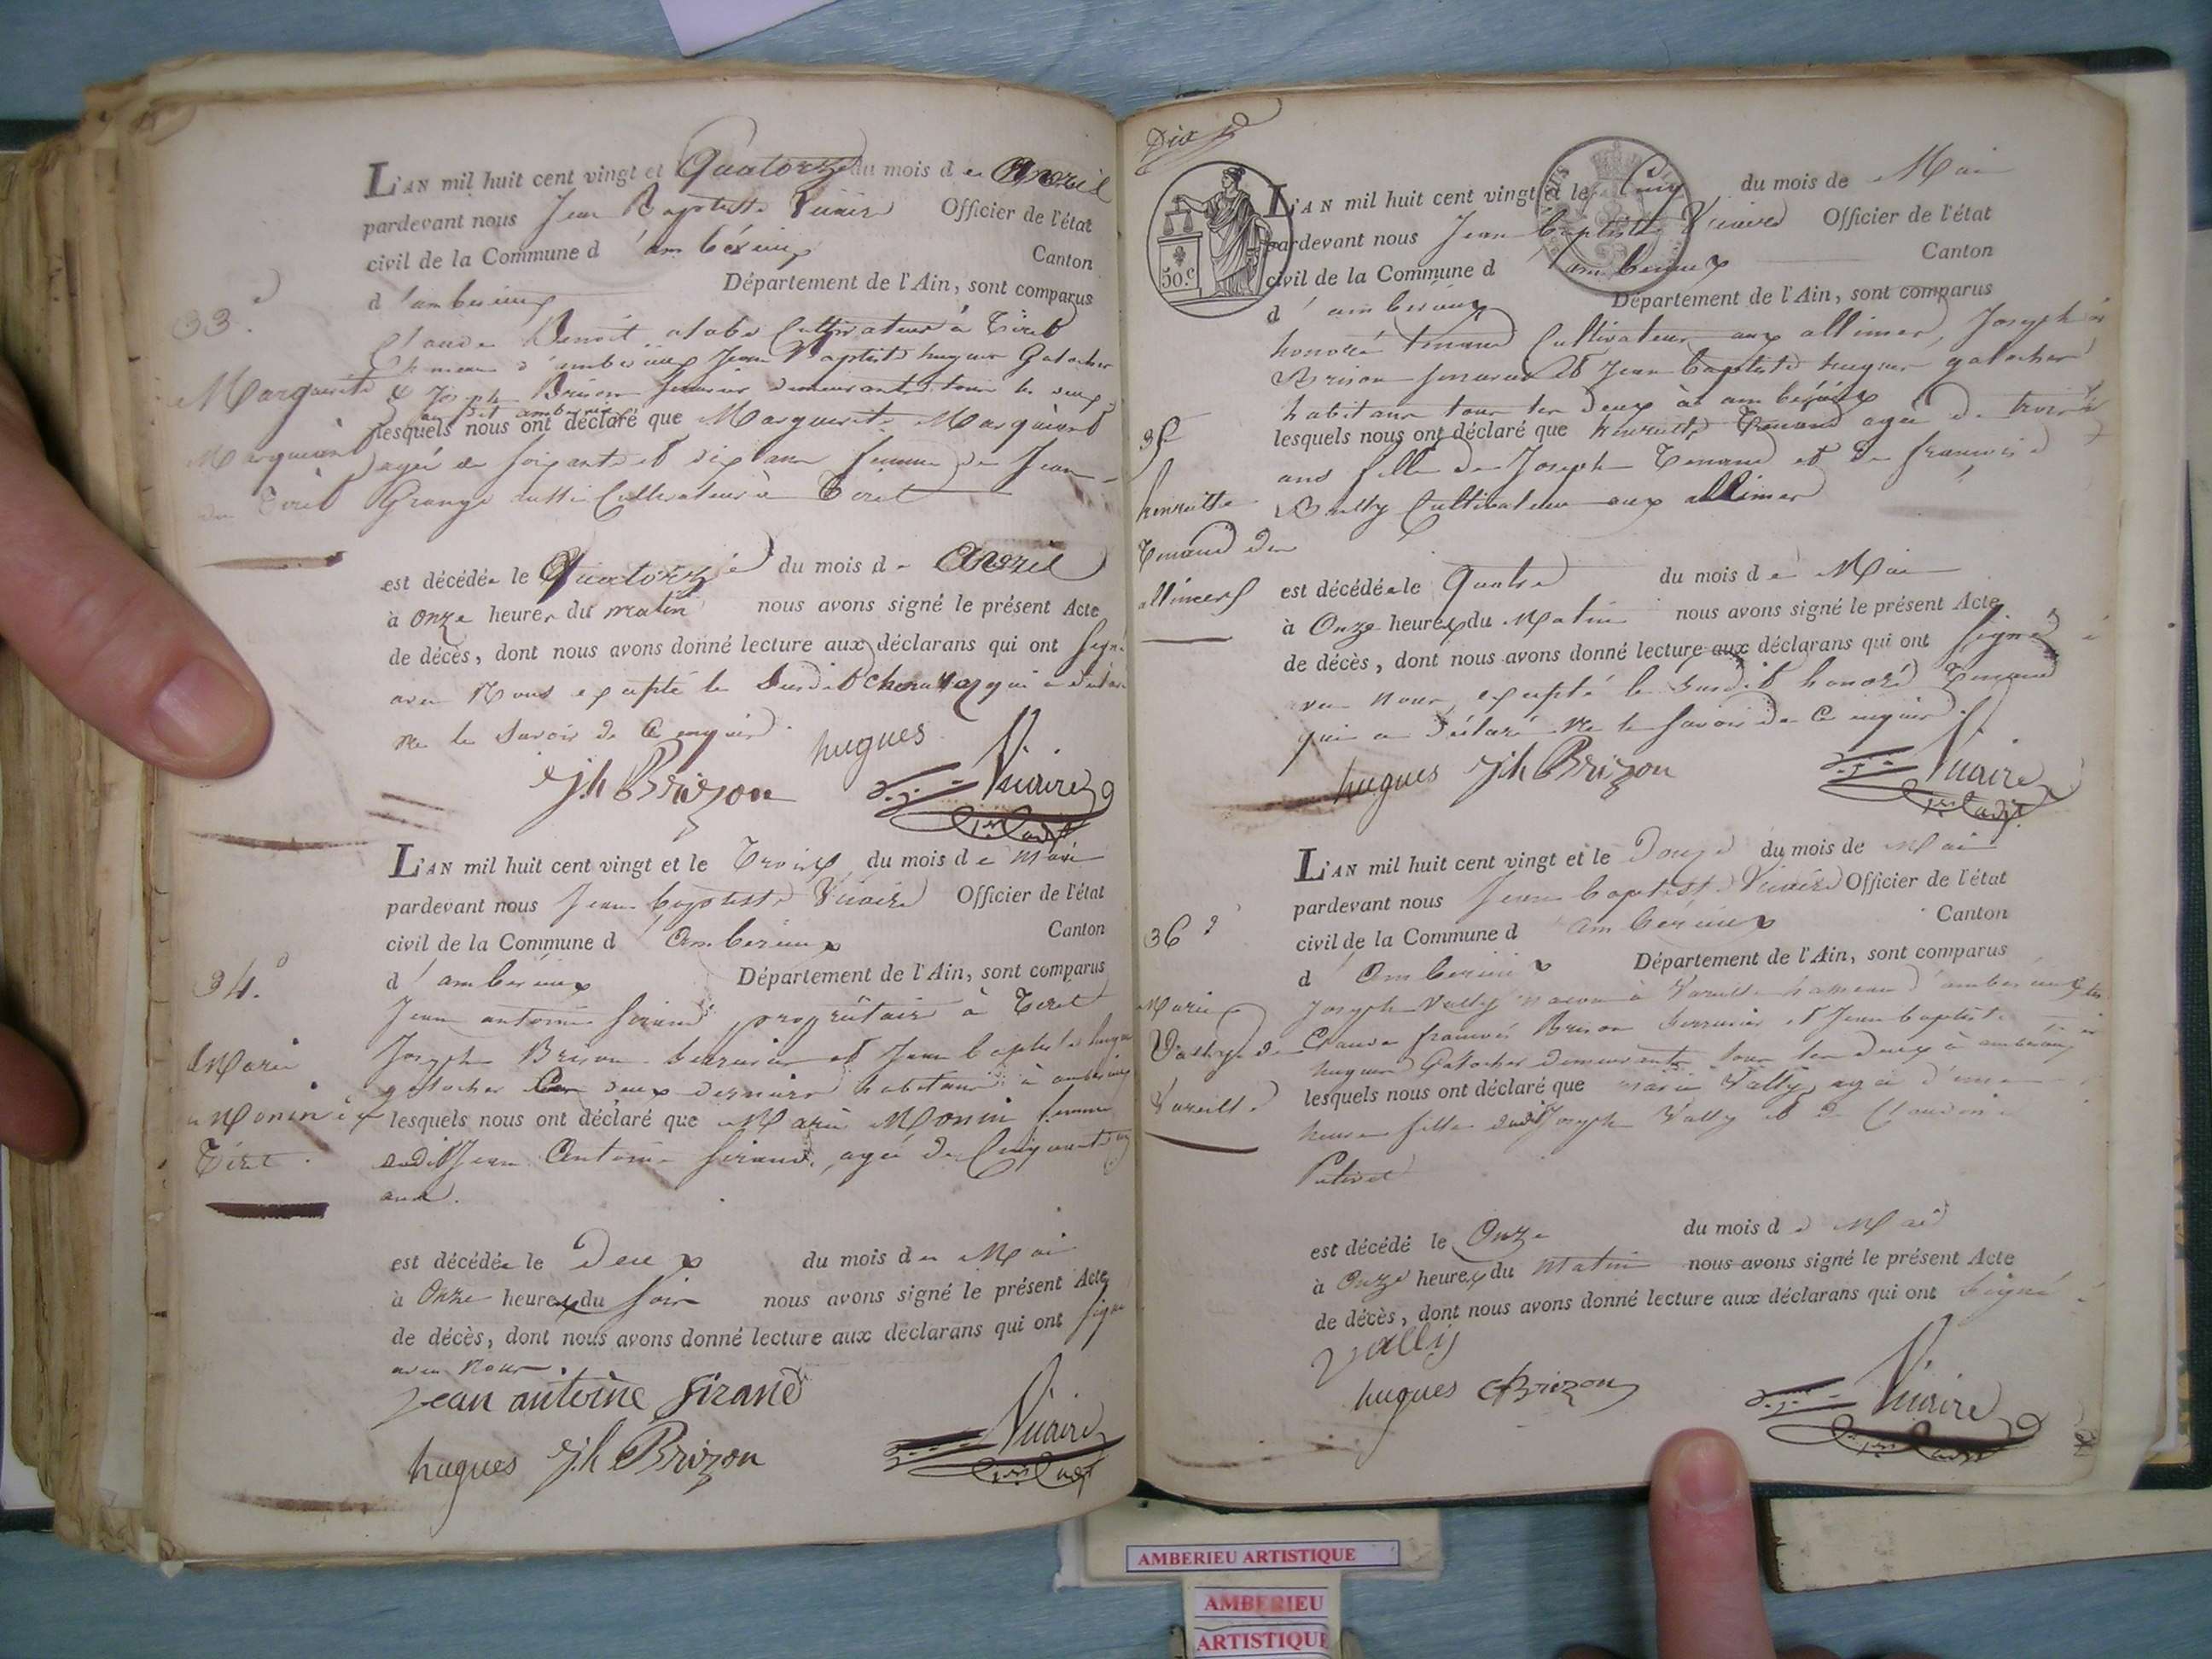 L'AN mil huit cent vingt et Quatorze du mois de Avril
pardevant nous Jean Baptiste Vicaire Officier de l'état
civil de la Commune d'ambérieux Canton
d'amberieux Département de l'Ain, sont comparus
33.e
Claude Benoit Cultivateur à Tiret
hameau d'amberieux Jean Baptiste hugues Galocher
& Joseph Brison demeurants tous les deux
au dit amberieux
Marguerite
lesquels nous ont déclaré que Marguerite
agée de soixante et dix ans femme de Jean
du Tiret
Grange aussi Cultivateur à Tiret
est décédée le Quatorze du mois de Avril
à onze heures du matin nous avons signé le présent Acte
de décès, dont nous avons donné lecture aux déclarans qui ont signé
avec Nous excepté le Susdit qui a déclaré
ne le Savoir de Ce enquis.
hugues
Jh Brizon Vicaire
L'AN mil huit cent vingt et le Trois du mois de Mai
pardevant nous Jean baptiste Vicaire Officier de l'état
civil de la Commune d'Amberieux Canton
d'amberieux Département de l'Ain, sont comparus
34.e
Jean antoine Sirand propriétaire à Tiret
Joseph Brison et Jean baptiste hugues
galocher Ces deux derniers habitans à amberieux
Marie
Monin de
Tiret.
lesquels nous ont déclaré que Marie Monin femme
dudit Jean Antoine Sirand, agée de Cinquante
ans.
est décédée le Deux du mois de Mai
à Onze heures du Soir nous avons signé le présent Acte
de décès, dont nous avons donné lecture aux déclarans qui ont signé
avec Nous.
jean antoine Sirand
hugues Jh Brizon Vicaire
Dix
50.C
L'AN mil huit cent vingt et le Cinq du mois de Mai
pardevant nous Jean baptiste Vicaire Officier de l'état
civil de la Commune d'amberieux Canton
d'amberieux Département de l'Ain, sont comparus
honoré Tenand Cultivateur aux allimes, Joseph
Brison et Jean baptiste hugues galocher
habitans tous les deux à ambérieux
35
henriette
Tenand des
allimes
lesquels nous ont déclaré que henriette Tenand agée de trois
ans fille de Joseph Tenand et de françoise
Bailly Cultivateur aux allimes
est décédée le Quatre du mois de Mai
à Onze heures du Matin nous avons signé le présent Acte
de décès, dont nous avons donné lecture aux déclarans qui ont Signé
avec nous, excepté le susdit honoré Tenand
qui a déclaré Ne le Savoir de Ce enquis.
hugues Jh Brizon Vicaire
L'AN mil huit cent vingt et le Douze du mois de Mai
pardevant nous Jean baptiste Vicaire Officier de l'état
civil de la Commune d'amberieux Canton
d'Amberieux Département de l'Ain, sont comparus
36.e
Joseph Vally à Vareille hameau d'amberieux
Claude françois Brison et Jean baptiste
hugues Galocher demeurants tous les deux à amberieux
Marie
Vally de
Vareille
lesquels nous ont déclaré que Marie Vally agée d'une
heure fille dudit Joseph Vally et de Claudine
est décédé le Onze du mois de Mai
à Onze heures du Matin nous avons signé le présent Acte
de décès, dont nous avons donné lecture aux déclarans qui ont signé
Vally
hugues Brizon Vicaire
AMBERIEU ARTISTIQUE
AMBERIEU
ARTISTIQUE